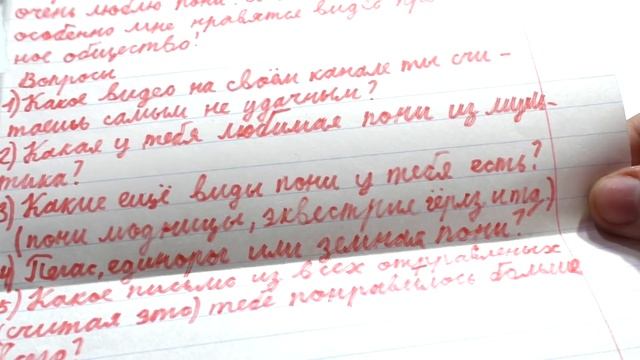 очень люблю пони.
особенно мне нравятся видео про
ное общество!
Вопросы
1) Какое видео на своём канале ты счи-
таешь самым не удачным?
2) Какая у тебя любимая пони из муль-
тика?
3) Какие ещё виды пони у тебя есть?
(пони модницы, эквестрия гёрлз итд)
4) Пегас, единорог или земная пони?
5) Какое письмо из всех отправленых
(считая это) тебе понравилось больше
всего?